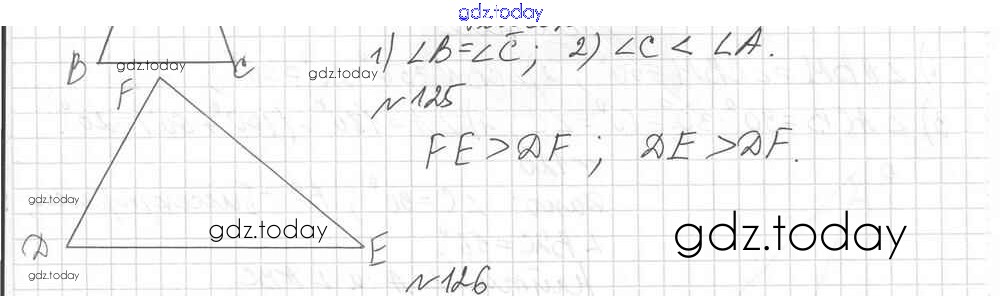 gdz.today
1) ∠B=∠C; 2) ∠C < ∠A.
B gdz.today C gdz.today
F №125
FE > DF; DE > DF.
gdz.today
gdz.today gdz.today
D E
gdz.today №126